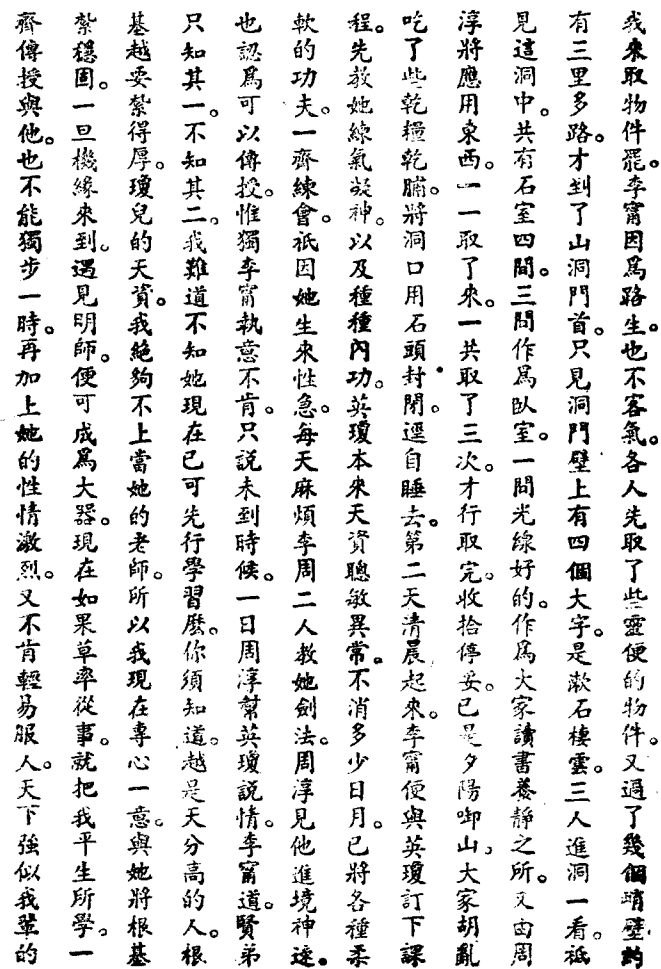 我來取物件罷。李甯因爲路生。也不客氣。各人先取了些靈便的物件。又過了幾個峭壁。約
有三里多路。才到了山洞門首。只見洞門壁上有四個大字。是漱石棲雲。三人進洞一看。祇
見這洞中。共有石室四間。三間作爲臥室。一間光線好的。作爲大家讀書養靜之所。又由周
淳將應用東西。一一取了來。一共取了三次。才行取完。收拾停妥。已是夕陽啣山。大家胡亂
吃了些乾糧乾脯。將洞口用石頭封閉。逕自睡去。第二天清晨起來。李甯便與英瓊訂下課
程。先教她練氣凝神。以及種種內功。英瓊本來天資聰敏異常。不消多少日月。已將各種柔
軟的功夫。一齊練會。祇因她生來性急。每天麻煩李周二人教她劍法。周淳見他進境神速。
也認爲可以傳授。惟獨李甯執意不肯。只說未到時候。一日周淳幫英瓊說情。李甯道。賢弟
只知其一。不知其二。我難道不知她現在已可先行學習麽。你須知道。越是天分高的人。根
基越要紮得厚。瓊兒的天資。我絕夠不上當她的老師。所以我現在專心一意。與她將根基
紮穩固。一旦機緣來到。遇見明師。便可成爲大器。現在如果草率從事。就把我平生所學。一
齊傳授與他。也不能獨步一時。再加上她的性情激烈。又不肯輕易服人。天下強似我輩的